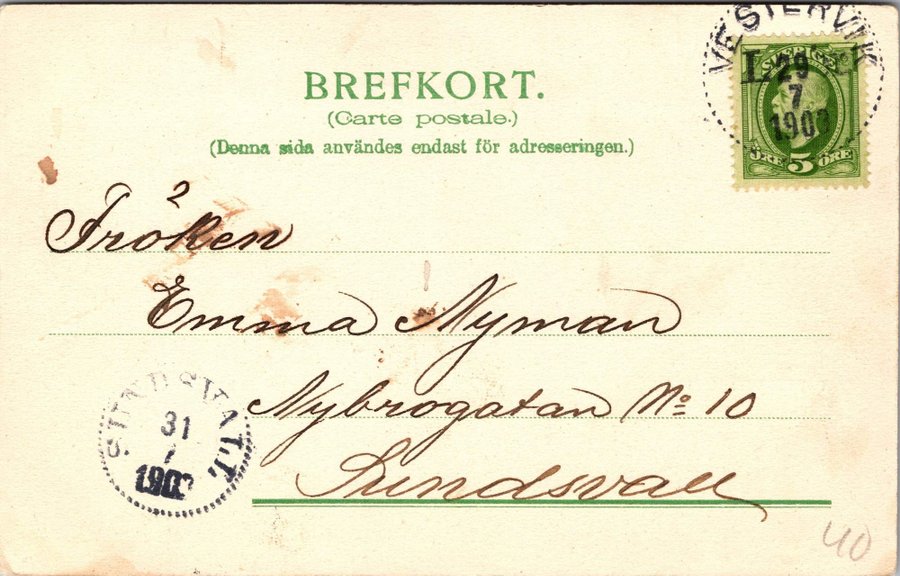 VESTERVIK
L. 29 L.
7
1903
SVERIGE
ÖRE 5 ÖRE
BREFKORT.
(Carte postale.)
(Denna sida användes endast för adresseringen.)
Fröken
Emma Nyman
Nybrogatan No 10
Sundsvall
SUNDSVALL
31
7
1903
40